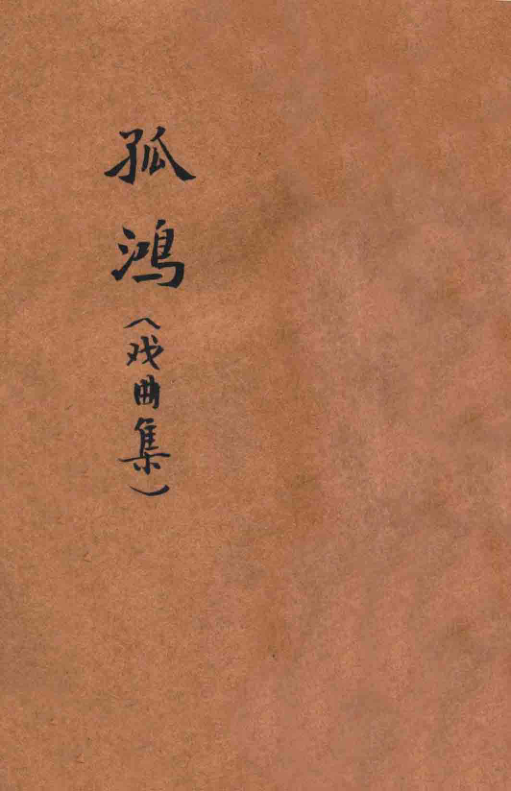 孤鸿（戏曲集）